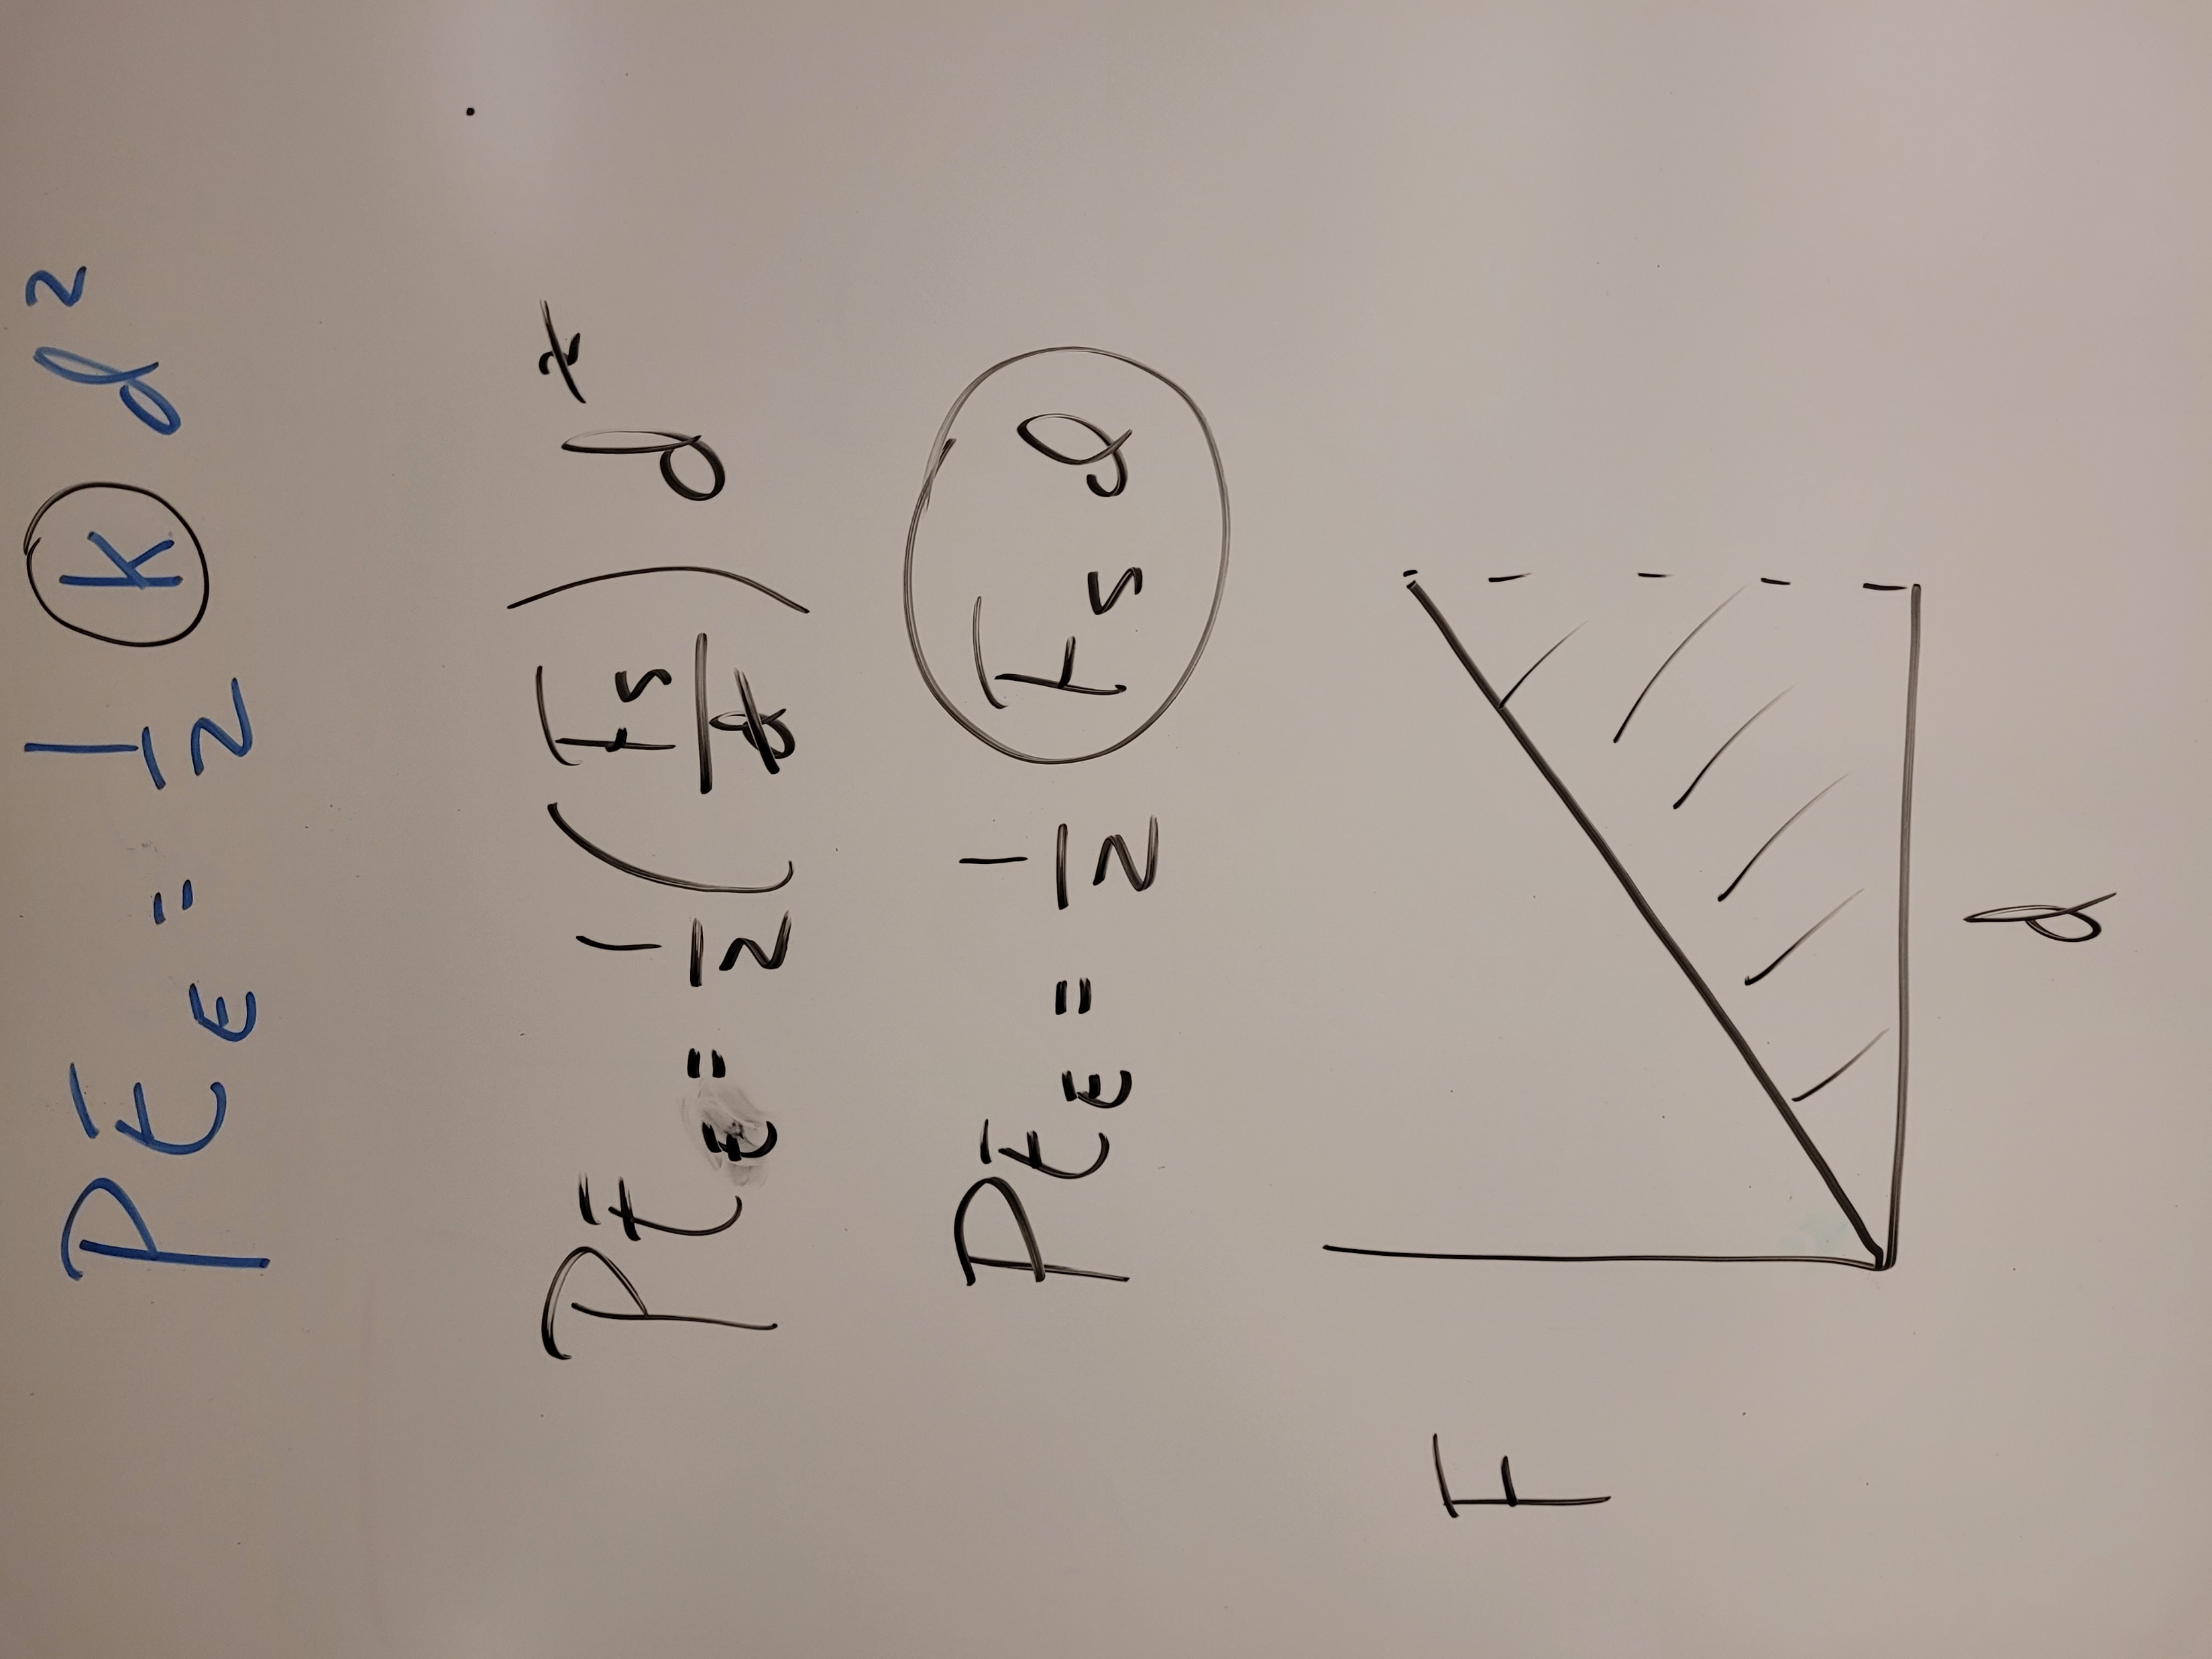 PE_E = 1/2 k d²
PE_E = 1/2 (F_s/d) d²
PE_E = 1/2 F_s d
F
d